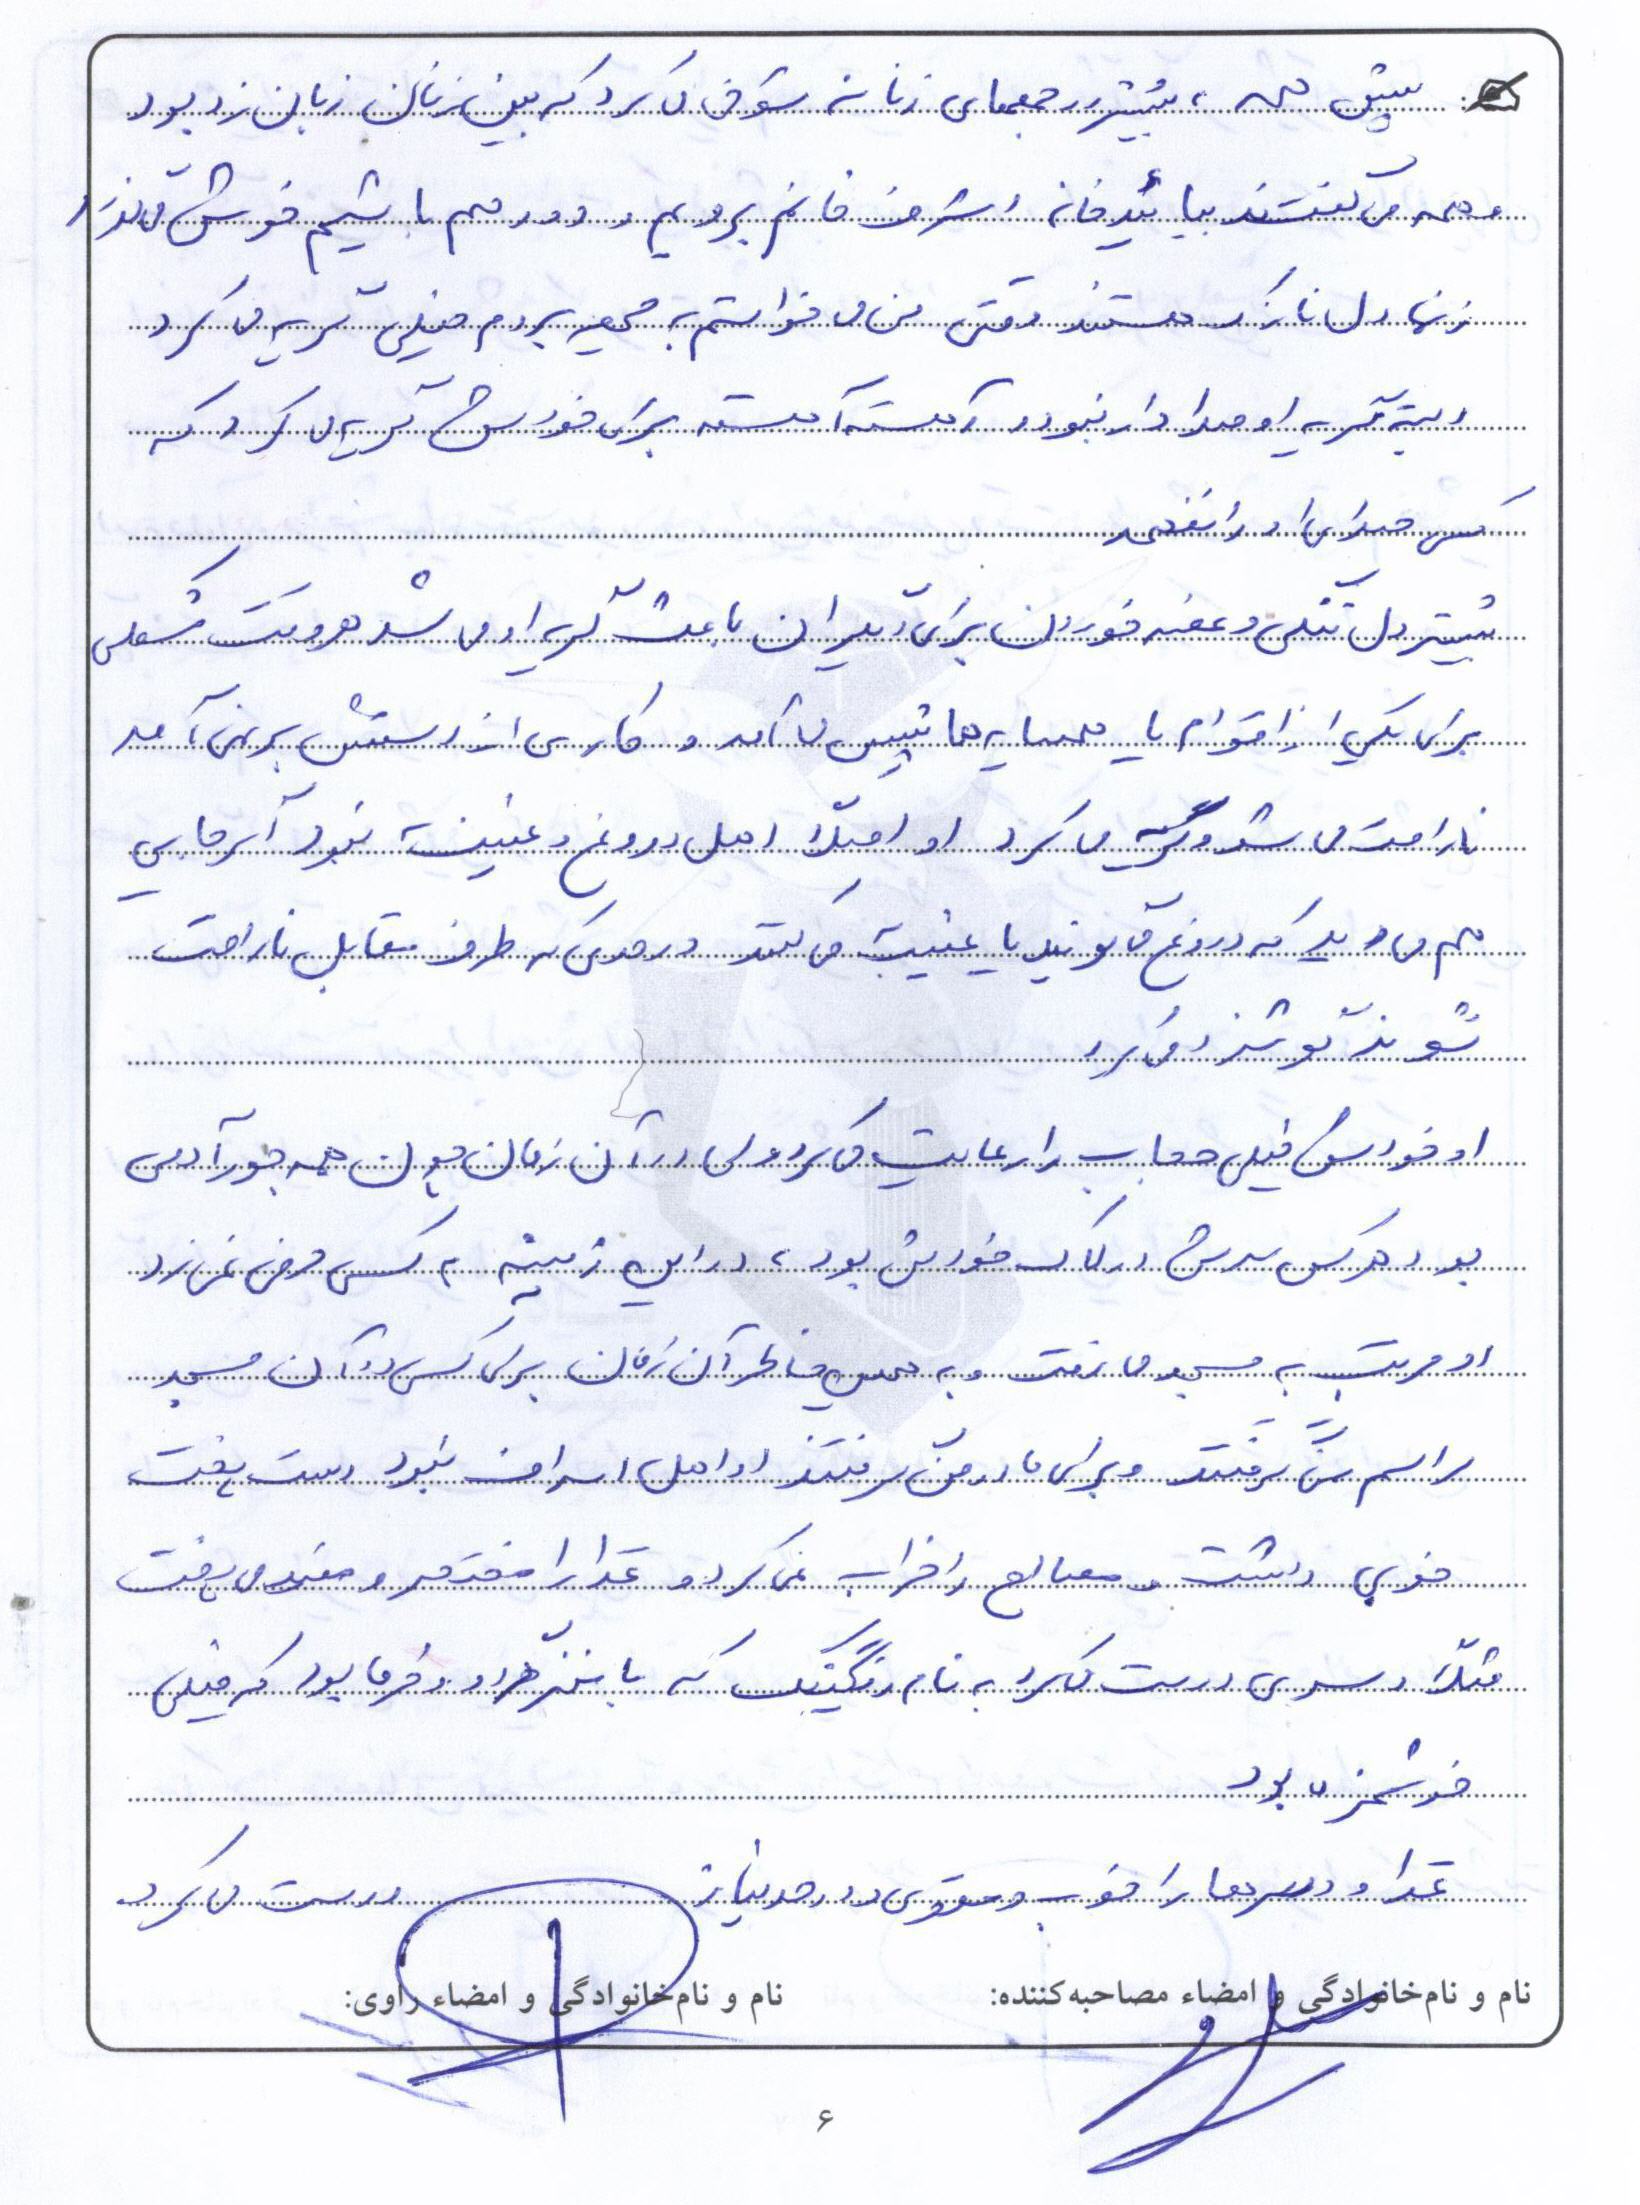 پیش همه، بیشتر در جمعهای زنانه شوخی می‌کرد که بین زنان زبان زد بود
همه می گفتند بیائید خانه اشرف خانم برویم و دور هم باشیم خوش می‌گذرد
زنها دل نازک هستند وقتی من می خواستم به جبهه بروم خیلی گریه می کرد
البته گریه او صدا دار نبود آهسته آهسته برای خودش گریه می کرد که
کسی صدای او را نفهمد
بیشتر دل تنگی و غصه خوردن برای دیگران باعث گریه او می شد هر وقت مشکلی
برای یکی از اقوام یا همسایه ها پیش می آمد و کاری از دستش بر نمی آمد
ناراحت می شد و گریه می کرد او اصلاً اهل دروغ و غیبت نبود اگر جایی
هم می دید که دروغ می گویند یا غیبت می کنند در حدی که طرف مقابل ناراحت
نشوند گوشزد می کرد
او خودش خیلی حجاب را رعایت می کرد ولی در آن زمان چون همه جور آدمی
بود هر کس سرش در لاک خودش بود، در این زمینه به کسی حرفی نمی زد
او مرتب به مسجد می رفت و به همین خاطر آن زمان برای کسی در آن مسجد
مراسم نمی گرفتند و برای مادر من گرفتند او اهل اسراف نبود دست پخت
خوبی داشت و مصالح را خراب نمی کرد و غذا را مختصر و مفید می پخت
مثلاً دسری درست می کرد به نام رنگینک که با خرما بود که خیلی
خوشمزه بود
غذا و دسرها را خوب و مقوی و در حد نیاز درست می کرد
نام و نام‌خانوادگی و امضاء مصاحبه‌کننده: نام و نام‌خانوادگی و امضاء راوی:
۶